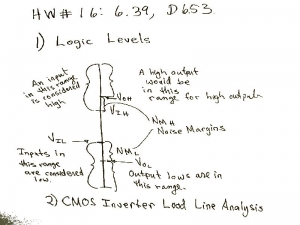 HW# 16: 6.39, D6.53
1) Logic Levels
An input
in this range
is considered
high
A high output
would be
in this
range for high outputs
VOH
VIH
NMH
Noise Margins
VIL
Inputs in
this range
are considered
low.
NML
VOL
Output lows are in
this range.
2) CMOS Inverter Load Line Analysis